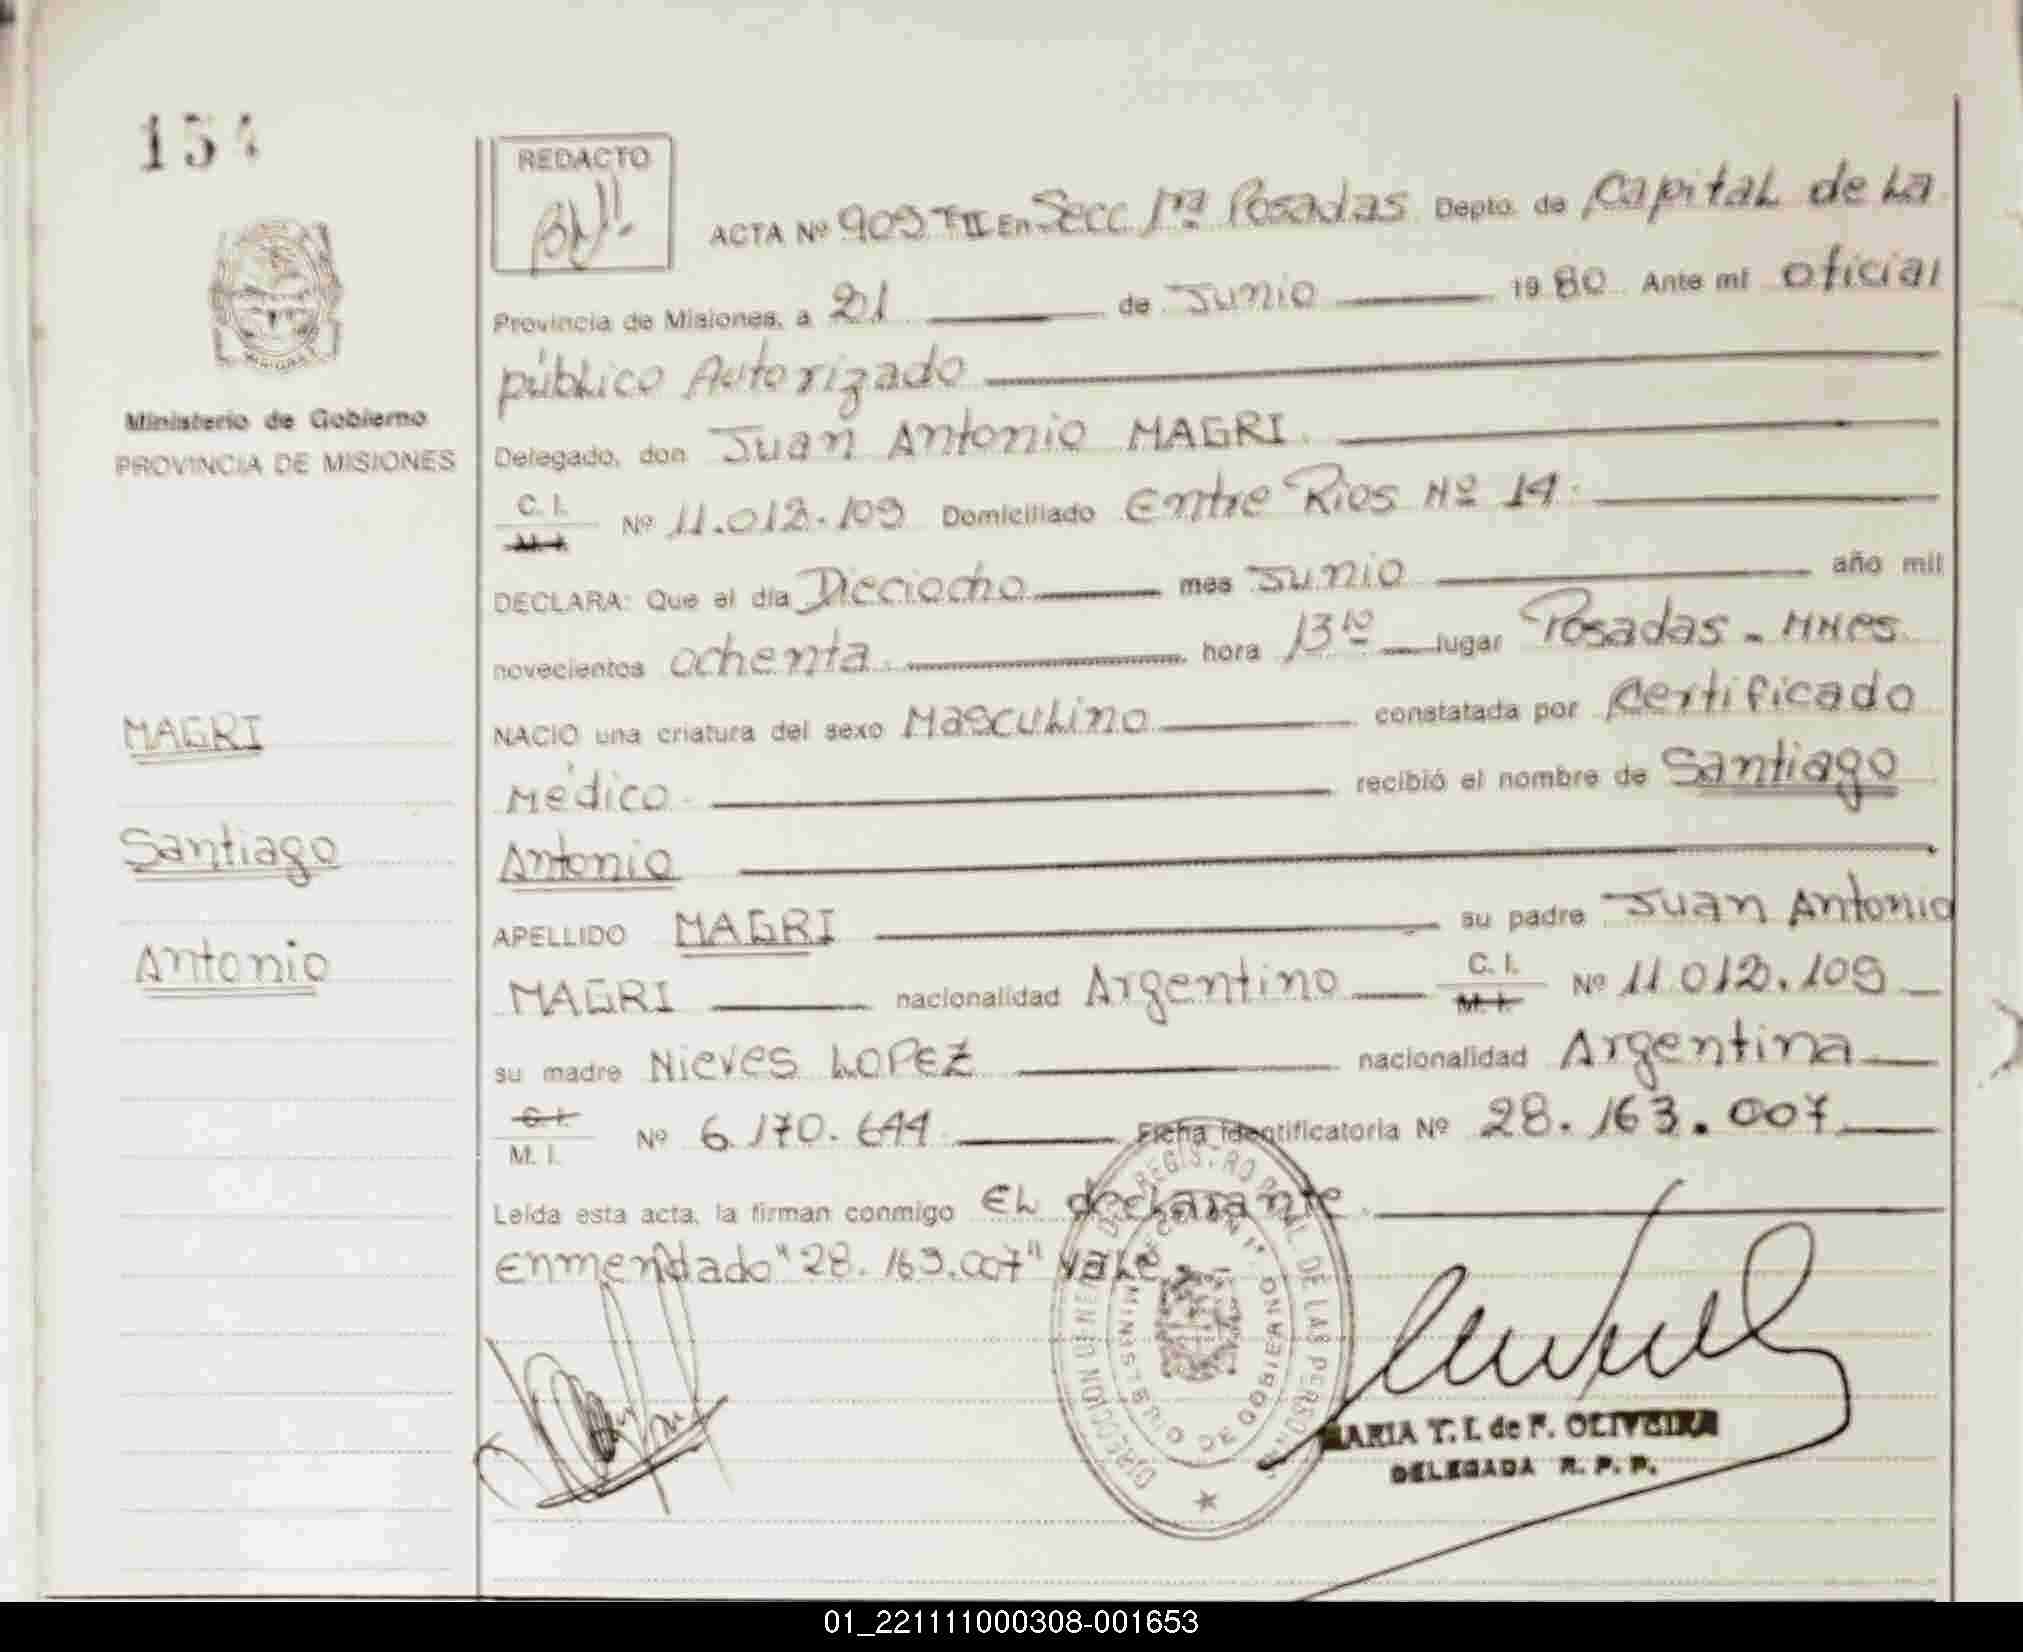 154
REDACTO
ACTA Nº 909 T II En Secc 1ra Posadas Depto. de Capital de La
Provincia de Misiones, a 21 de Junio 1980 Ante mí oficial
público Autorizado
Ministerio de Gobierno
PROVINCIA DE MISIONES
Delegado, don Juan Antonio MAGRI
C. I.
M. I.
Nº 11.012.109 Domiciliado Entre Rios Nº 14
DECLARA: Que el día Dieciocho mes Junio año mil
novecientos ochenta hora 13 10 lugar Posadas - Mnes.
NACIO una criatura del sexo Masculino constatada por Certificado
Médico recibió el nombre de Santiago
Antonio
APELLIDO MAGRI su padre Juan Antonio
MAGRI nacionalidad Argentino C. I. M. I. Nº 11.012.109
su madre Nieves LOPEZ nacionalidad Argentina
C. I.
M. I.
Nº 6.170.644 Ficha identificatoria Nº 28.163.007
Leída esta acta, la firman conmigo El declarante.
Enmendado "28.163.007" Vale.
MAGRI
Santiago
Antonio
DIRECCION GENERAL DEL REGISTRO PROVINCIAL DE LAS PERSONAS
SECCION 1ª
MINISTERIO DE GOBIERNO
MARIA T. I. de F. OLIVEIRA
DELEGADA R. P. P.
01_221111000308-001653